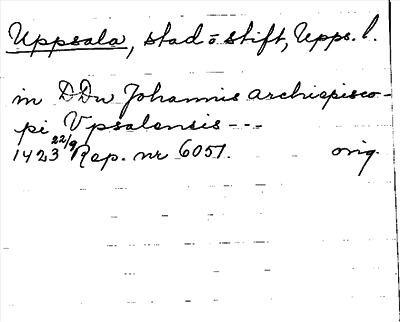 Uppsala, stad o stift, Upps. l.
in D Dn Johannis archiepisco-
pi Vpsalensis ---
1423 22/9 Rep. nr 6051. orig.